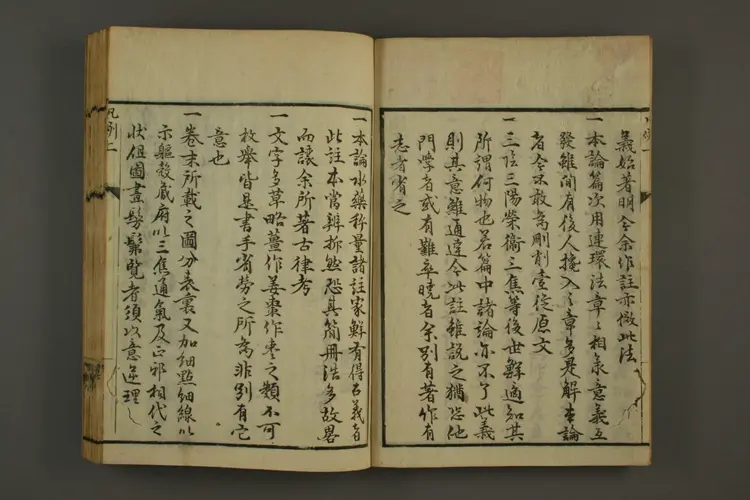 義始著明今余作註亦倣此法
一本論篇次用連環法章々相承意義互
發雖間有後人攙入之章多是解本論
者今不敢為刪割壹從原文
一三陰三陽榮衛三焦等後世鮮適知其
所謂何物也若篇中諸論亦不了此義
則其意難通達今此註雖説之猶恐他
門學者或有難卒曉者余別有著作有
志者省之
一本論水藥秤量諸註家鮮有得古義者
此註本當辨拆然恐其簡冊浩多故畧
而讓余所著古律考
一文字多草略薑作姜棗作枣之類不可
枚舉皆是書手省勞之所為非別有它
意也
一卷末所載之圖分表裏又加細點細線以
示軀殼藏府以三焦通氣及正邪相代之
狀但圖畫髣髴覽者須以意逆理
凡例二